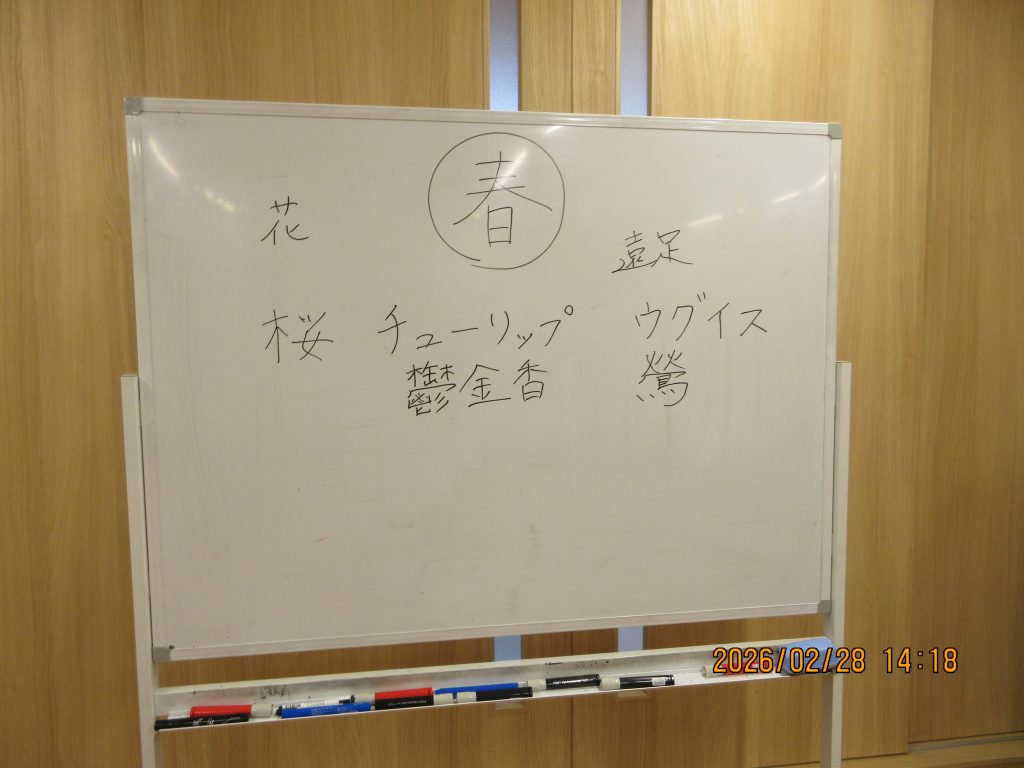 春
花
遠足
桜 チューリップ ウグイス
鬱金香 鶯
2026/02/28 14:18